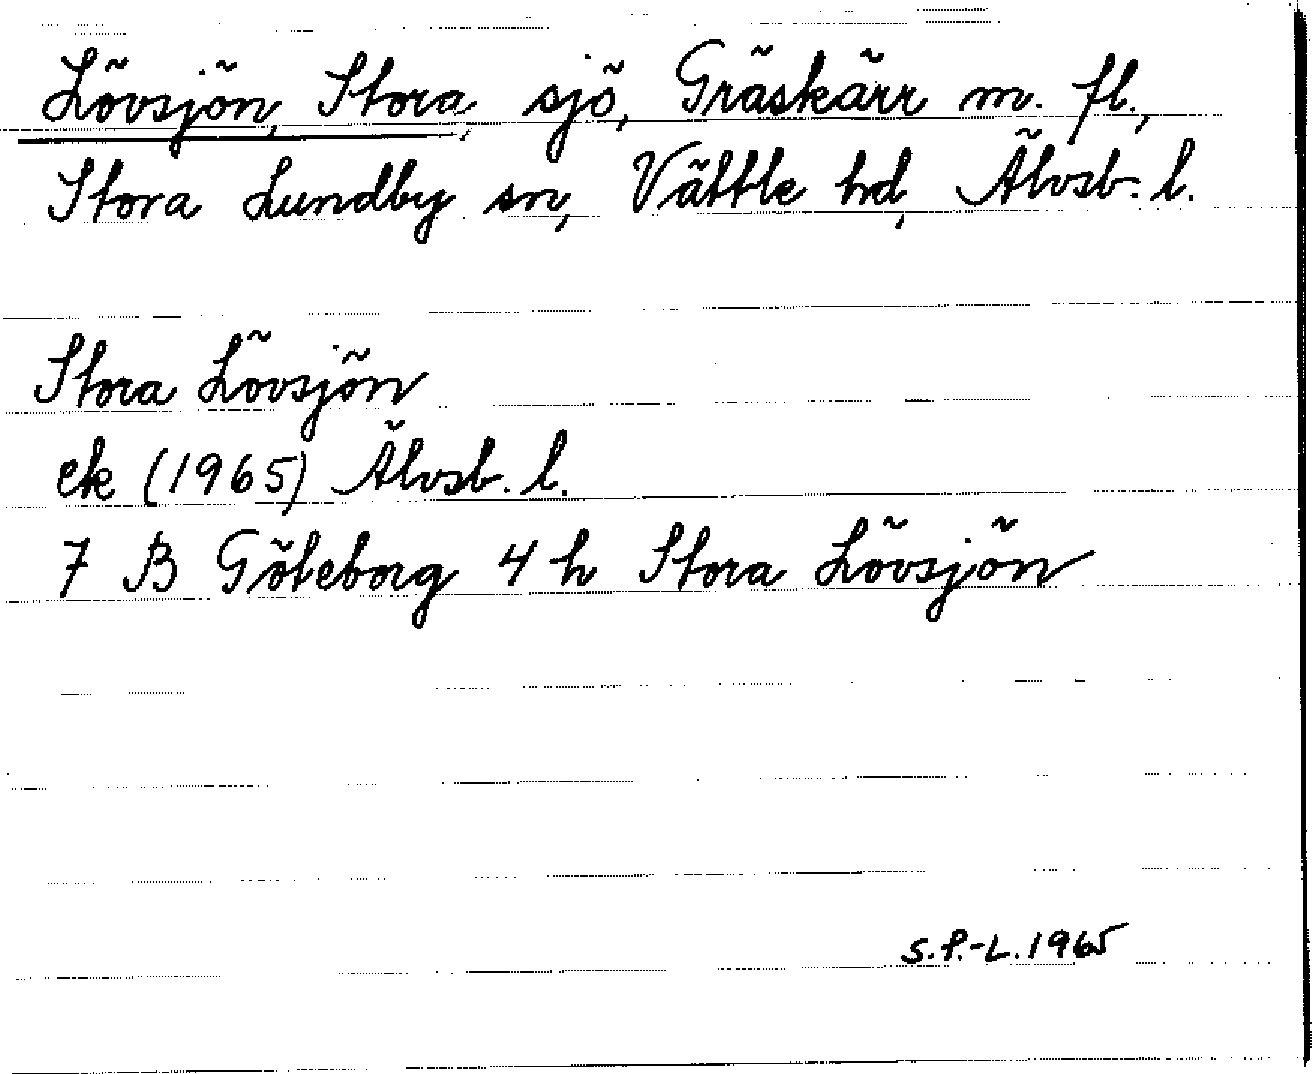 Lövsjön, Stora, sjö, Gräskärr m. fl.,
Stora Lundby sn, Vättle hd, Älvsb. l.
Stora Lövsjön
ek (1965) Älvsb. l.
7 B Göteborg 4 h Stora Lövsjön
S.P.-L. 1965